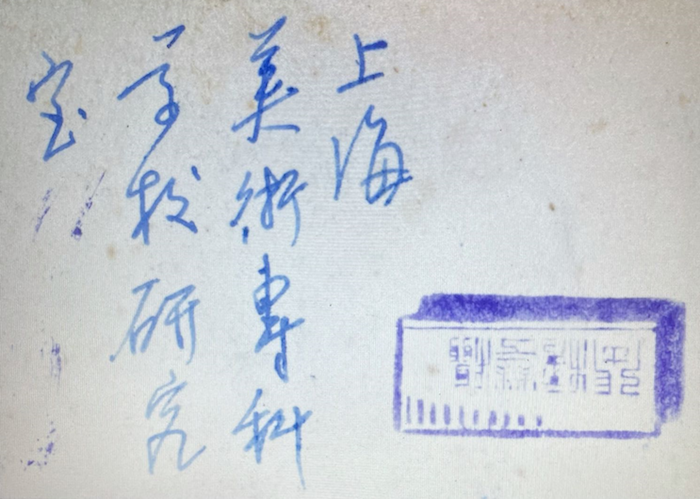 上海
美術専科
学校研究
室